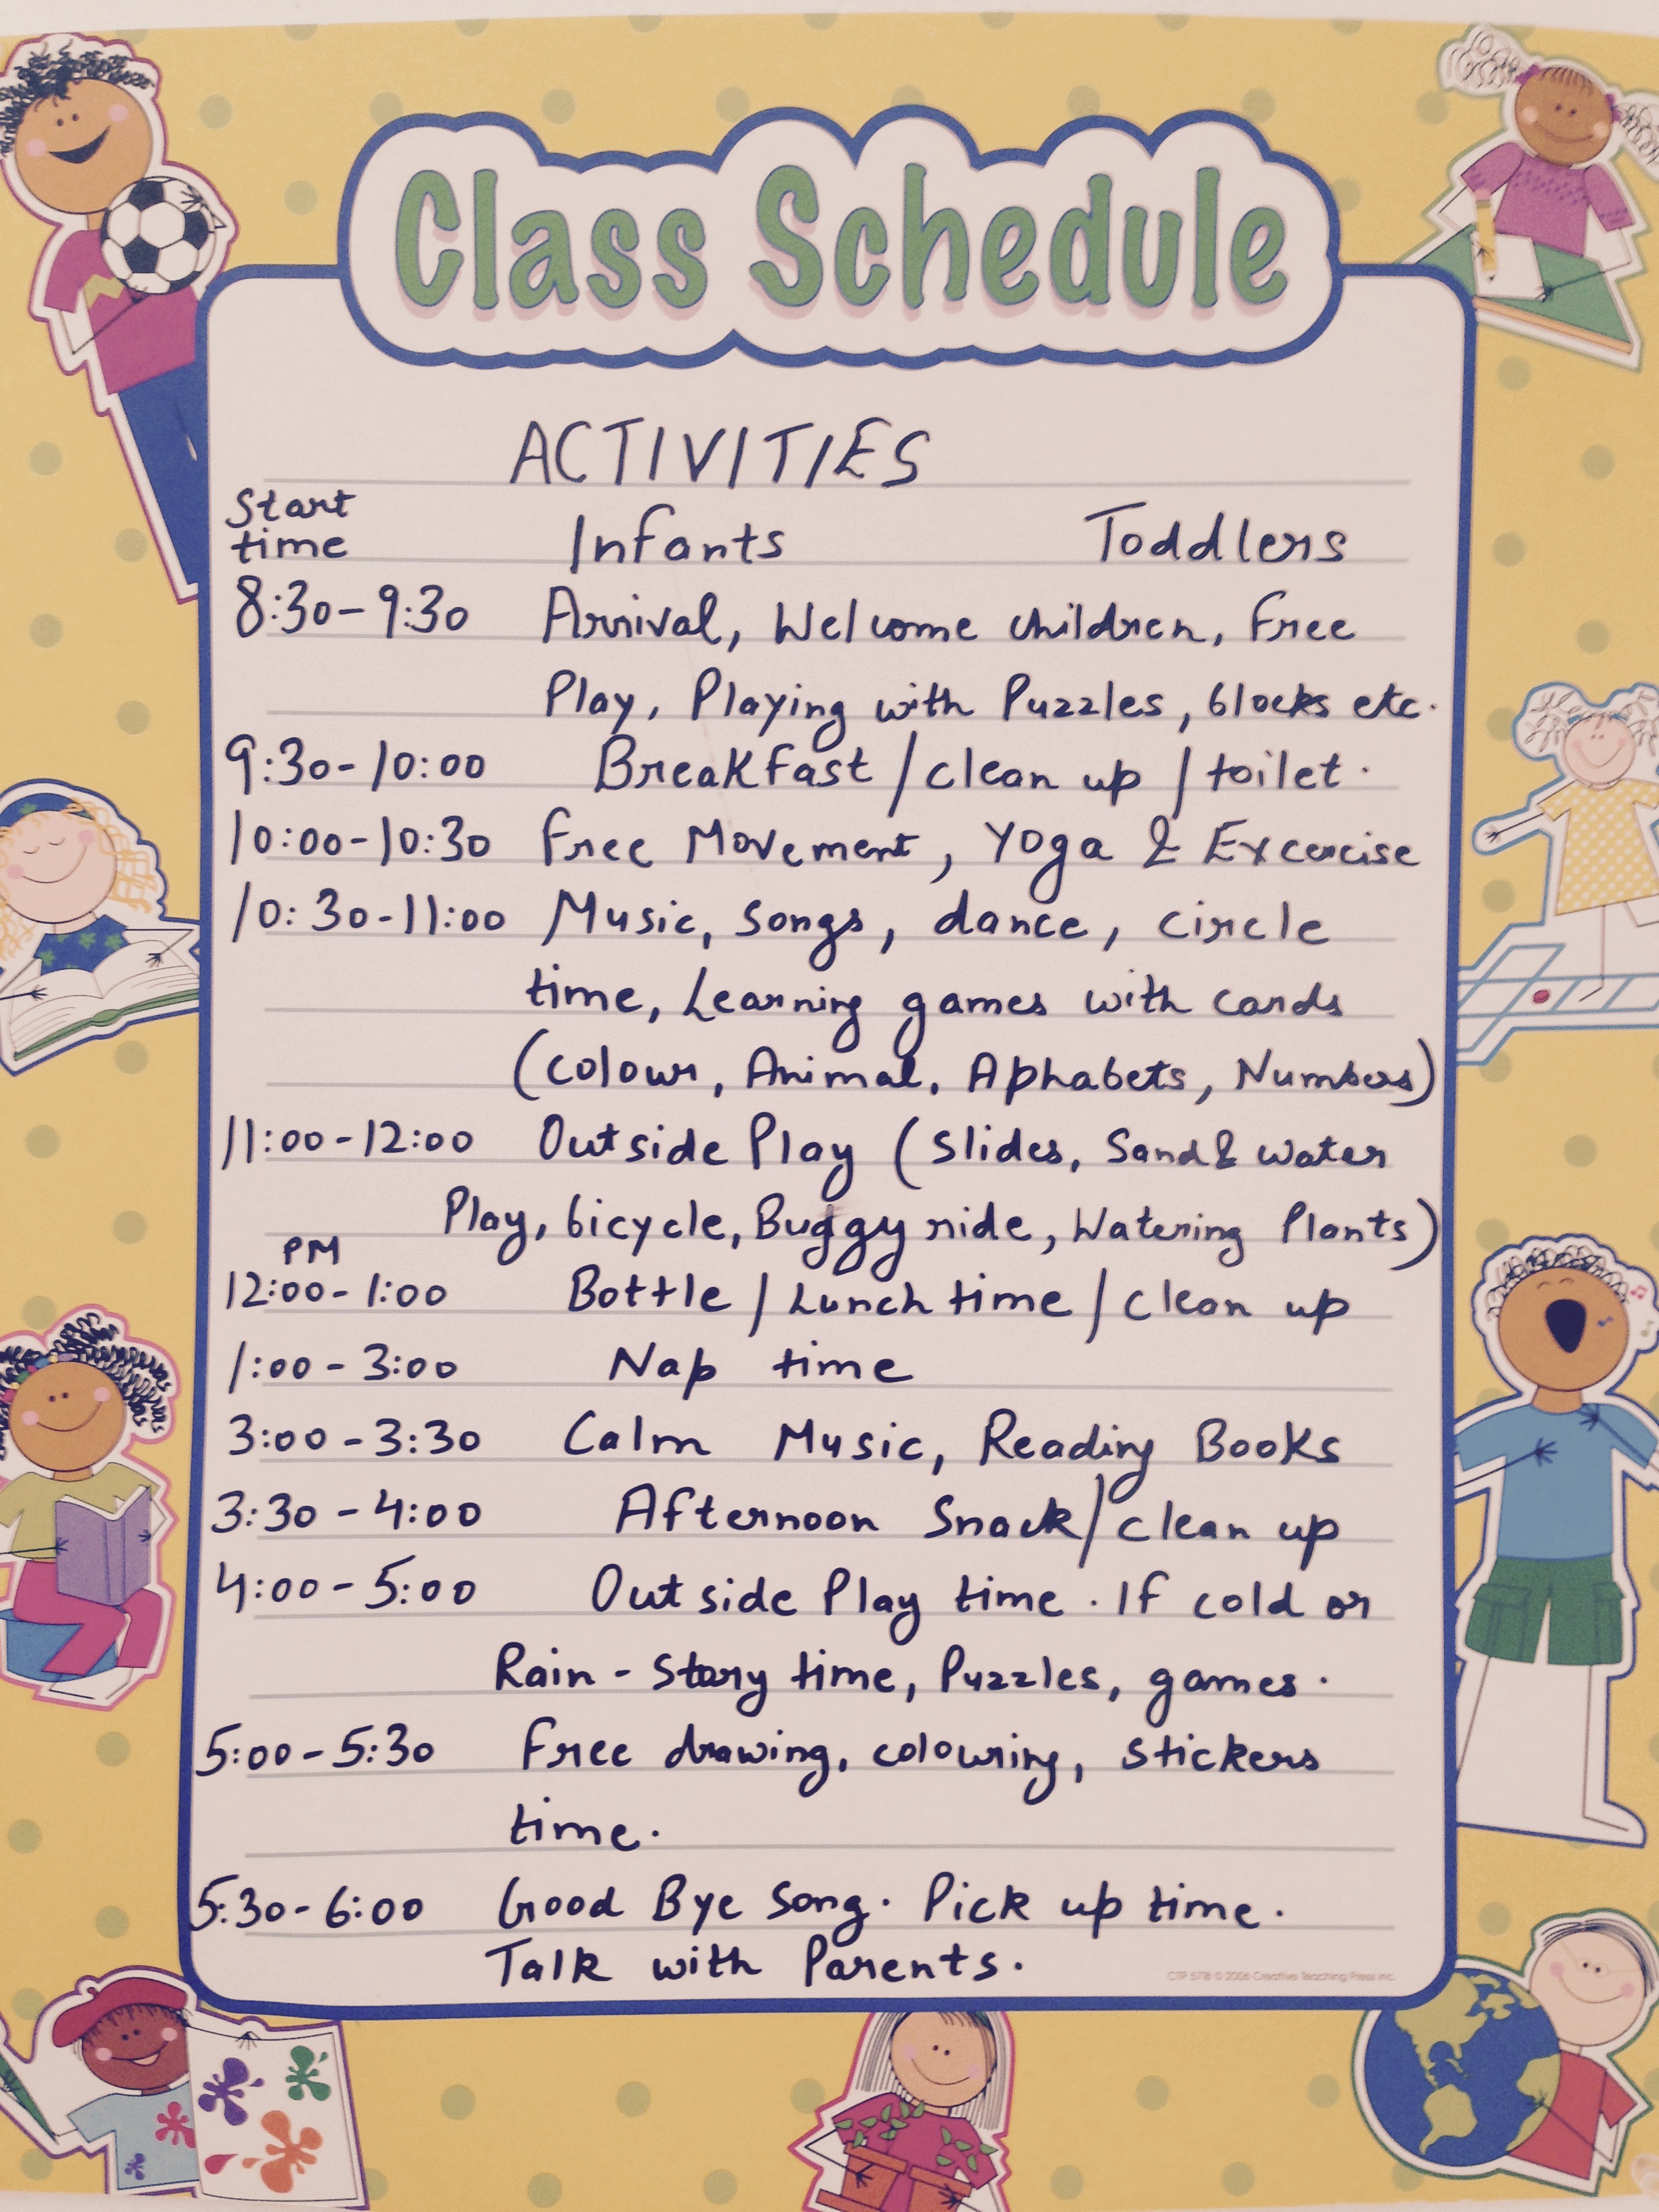 Class Schedule
ACTIVITIES
Start
time Infants Toddlers
8:30-9:30 Arrival, Welcome children, Free
Play, Playing with Puzzles, blocks etc.
9:30-10:00 Breakfast / clean up / toilet.
10:00-10:30 Free Movement, Yoga & Excercise
10:30-11:00 Music, Songs, dance, circle
time, Learning games with cards
(colour, Animal, Aphabets, Numbers)
11:00-12:00 Outside Play (Slides, Sand & Water
Play, bicycle, Buggy ride, Watering Plants)
PM
12:00-1:00 Bottle / Lunch time / clean up
1:00-3:00 Nap time
3:00-3:30 Calm Music, Reading Books
3:30-4:00 Afternoon Snack / clean up
4:00-5:00 Outside Play time. If cold or
Rain - Story time, Puzzles, games.
5:00-5:30 Free drawing, colouring, stickers
time.
5:30-6:00 Good Bye Song. Pick up time.
Talk with Parents.
CTP 5718 © 2006 Creative Teaching Press Inc.